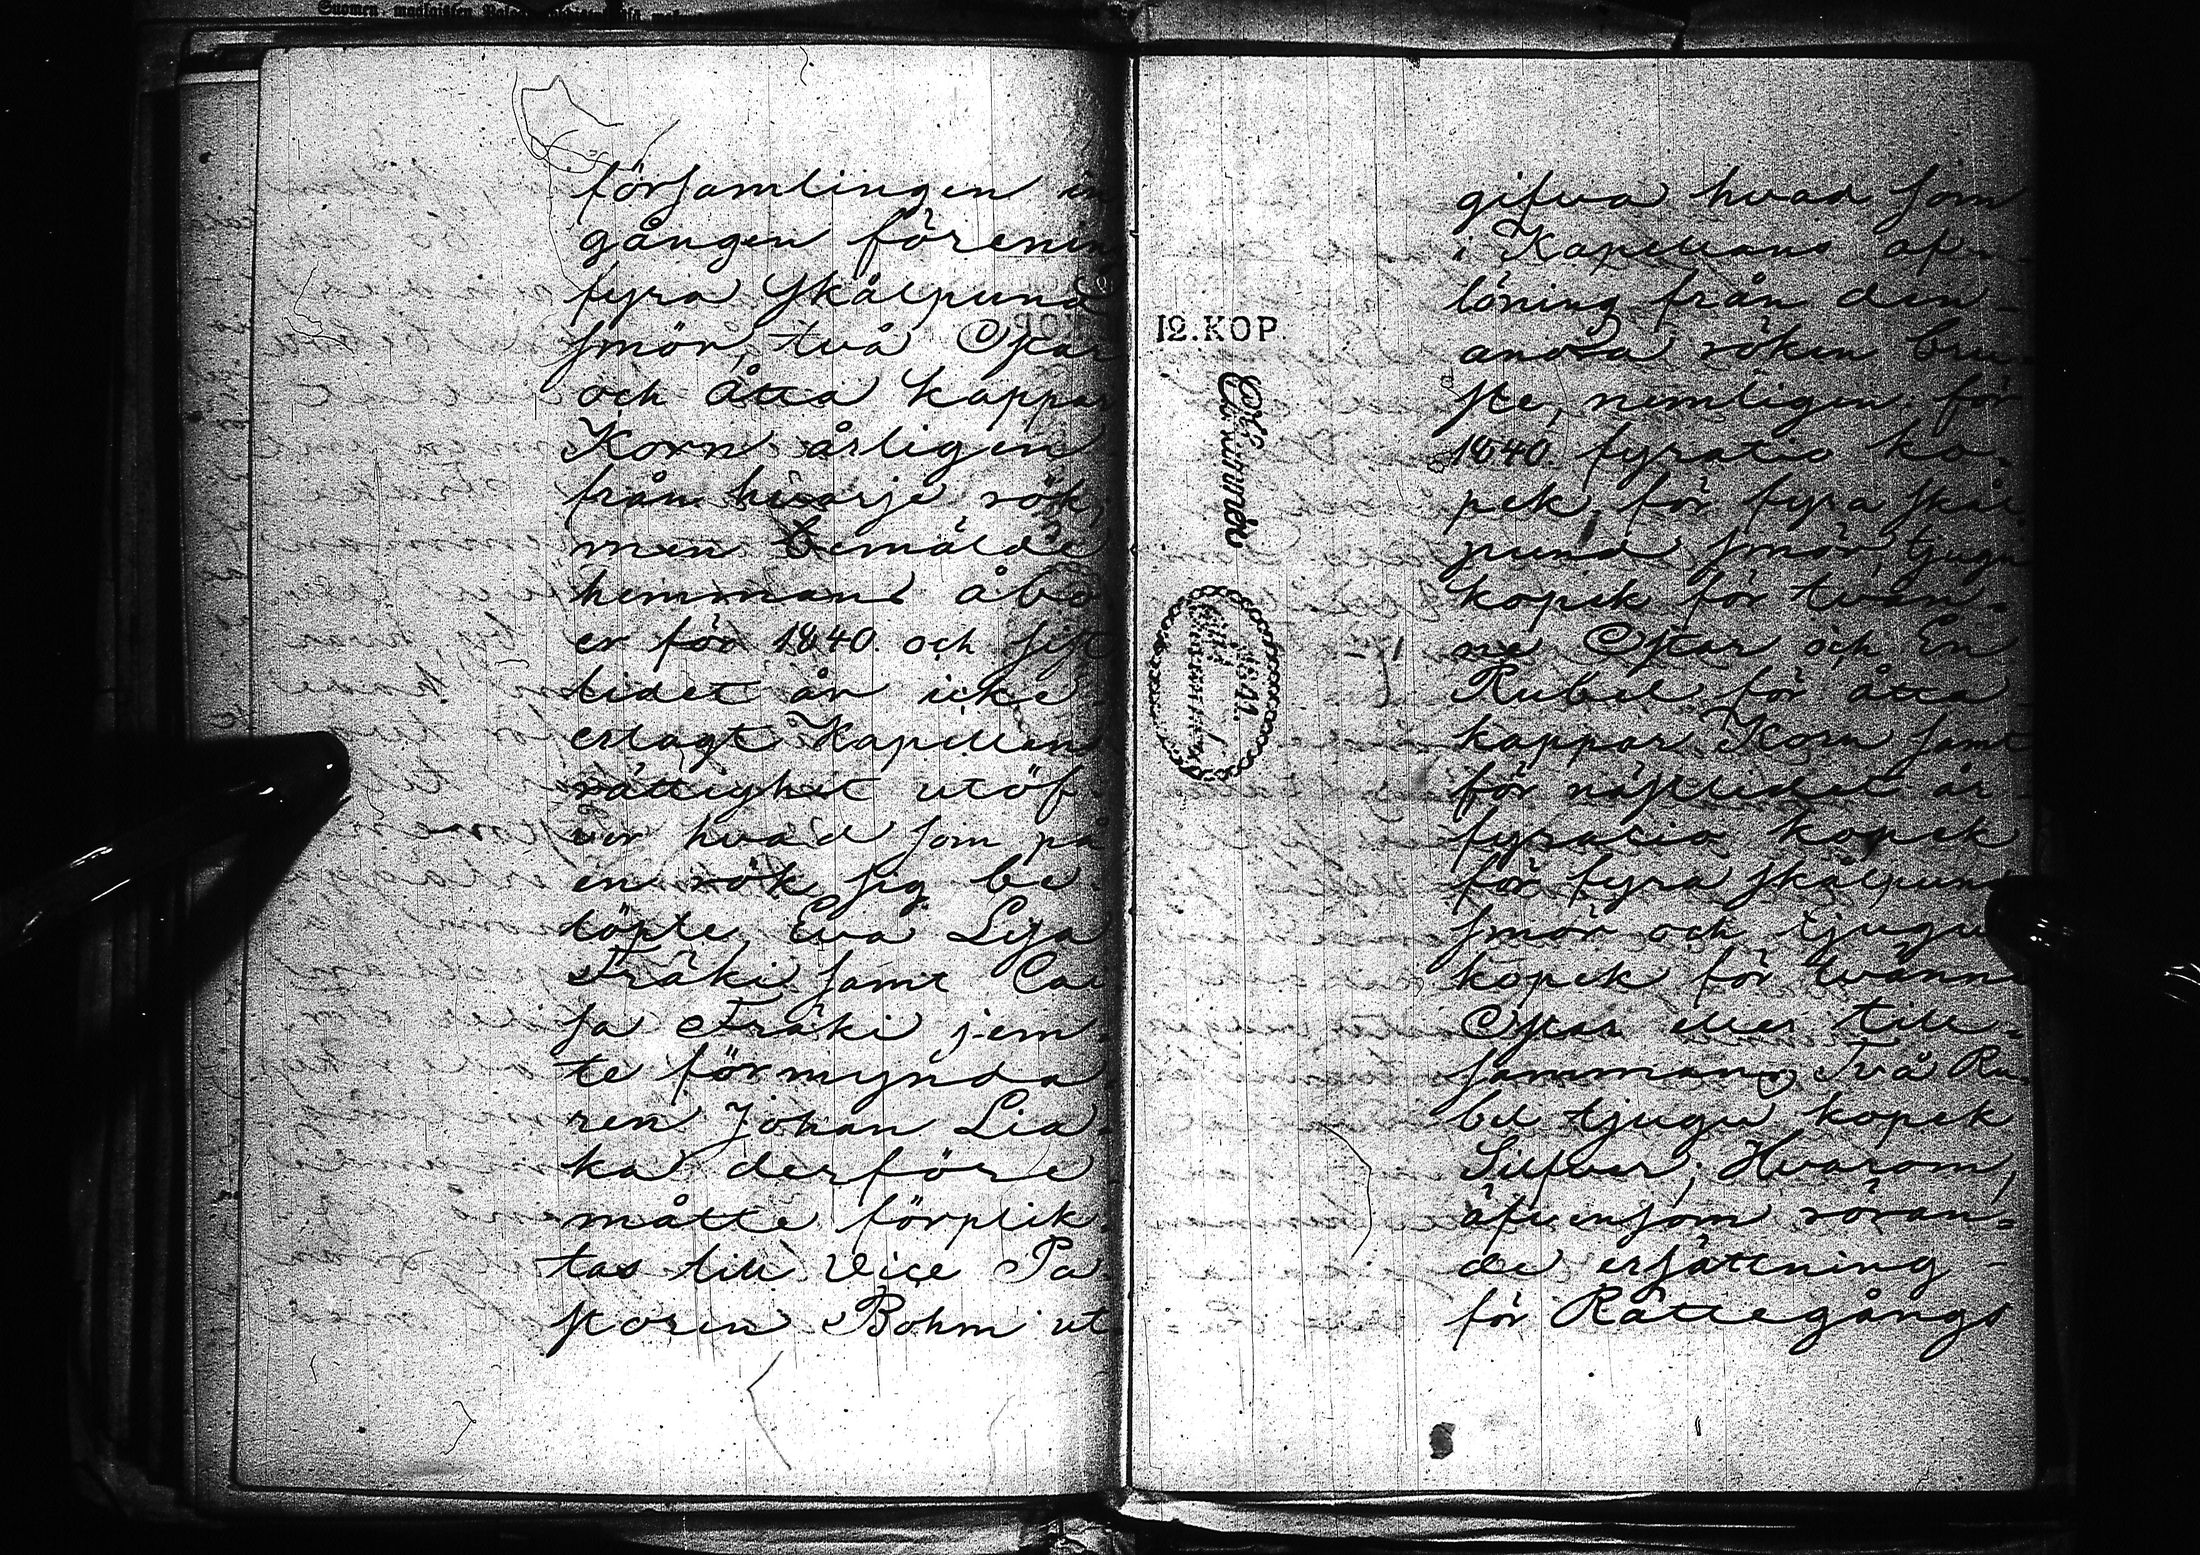 församlingen in
gången förenin
fyra skålpund
smör, två Ostar
och åtta kappar
Korn årligen
från hvarje rök,
men bemälde
hemmans åbo
er för 1840. och sist
lidet år icke
erlagt Kapellan
rättighet utöf
ver hvad som på
en rök sig be
löpte, Eva Lisa
Fräki samt Cai
sa Fräki jem¬
te förmynda
ren Johan Lia¬
ka derföre
måtte förplik¬
tas till Vice Pa
storin Bohm ut
gifva hvad som
i Kapellans af¬
löning från den¬
andra röken bru¬
ste, nemligen för
1840. fyratio ko¬
pek, för fyra skål
pund smör, tjugu
kopek för tvän¬
ne Ostar och En
Rubel för åtta
kappar Korn samt
för nästlidet år
fyratio kopek
för fyra skålpund
smör och tjugu
kopek för tvänne
Ostar eller till¬
sammans Två Ru¬
bel tjugu kopek
Silfver; Hvarom,
äfvensom röran¬
de ersättning
för Rättegångs
12. KOP.
1841.